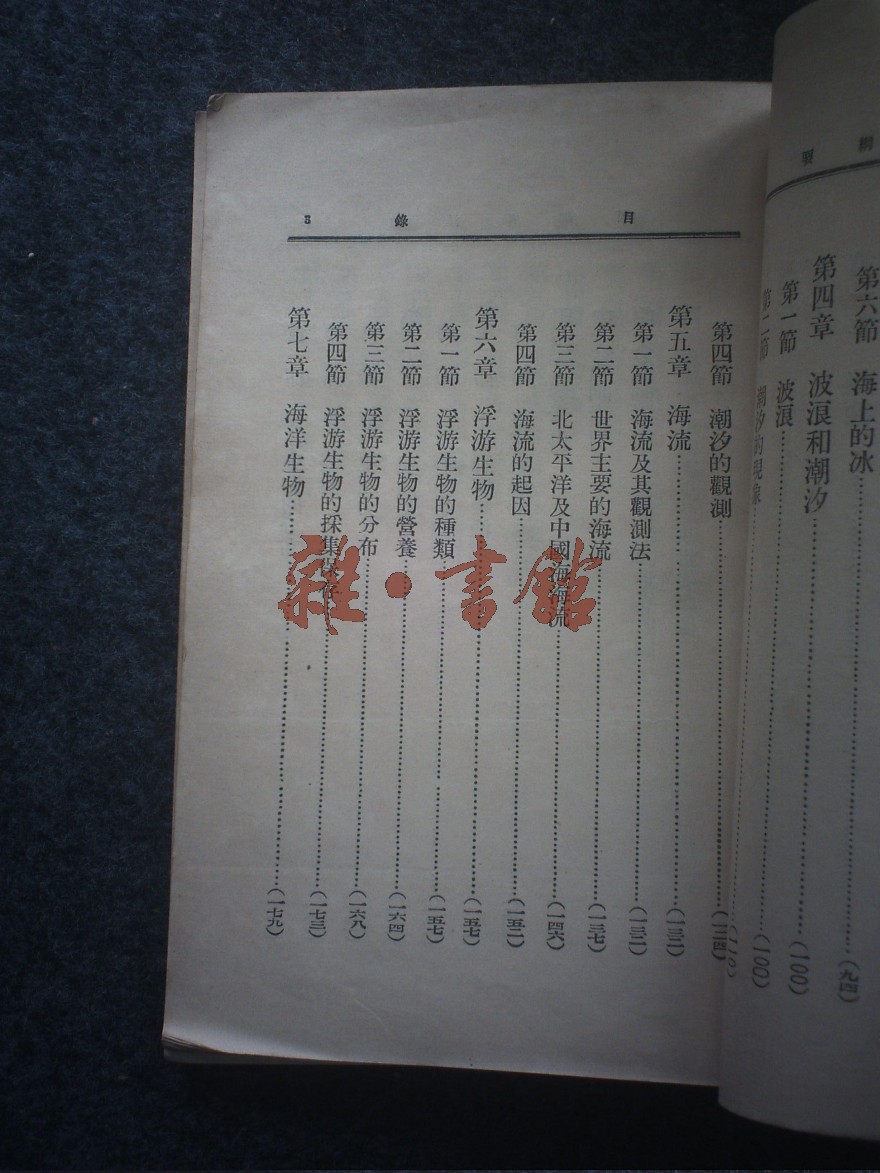 綱 要
第六節 海上的冰……(九四)
第四章 波浪和潮汐……(100)
第一節 波浪……(100)
第二節 潮汐的現象……
目 錄 3
第四節 潮汐的觀測……(一二四)
第五章 海流……(一三二)
第一節 海流及其觀測法……(一三二)
第二節 世界主要的海流……(一三七)
第三節 北太平洋及中國海海流……(一四六)
第四節 海流的起因……(一五二)
第六章 浮游生物……(一五七)
第一節 浮游生物的種類……(一五七)
第二節 浮游生物的營養……(一六四)
第三節 浮游生物的分布……(一六八)
第四節 浮游生物的採集保存……(一七三)
第七章 海洋生物……(一七九)
雜·書館